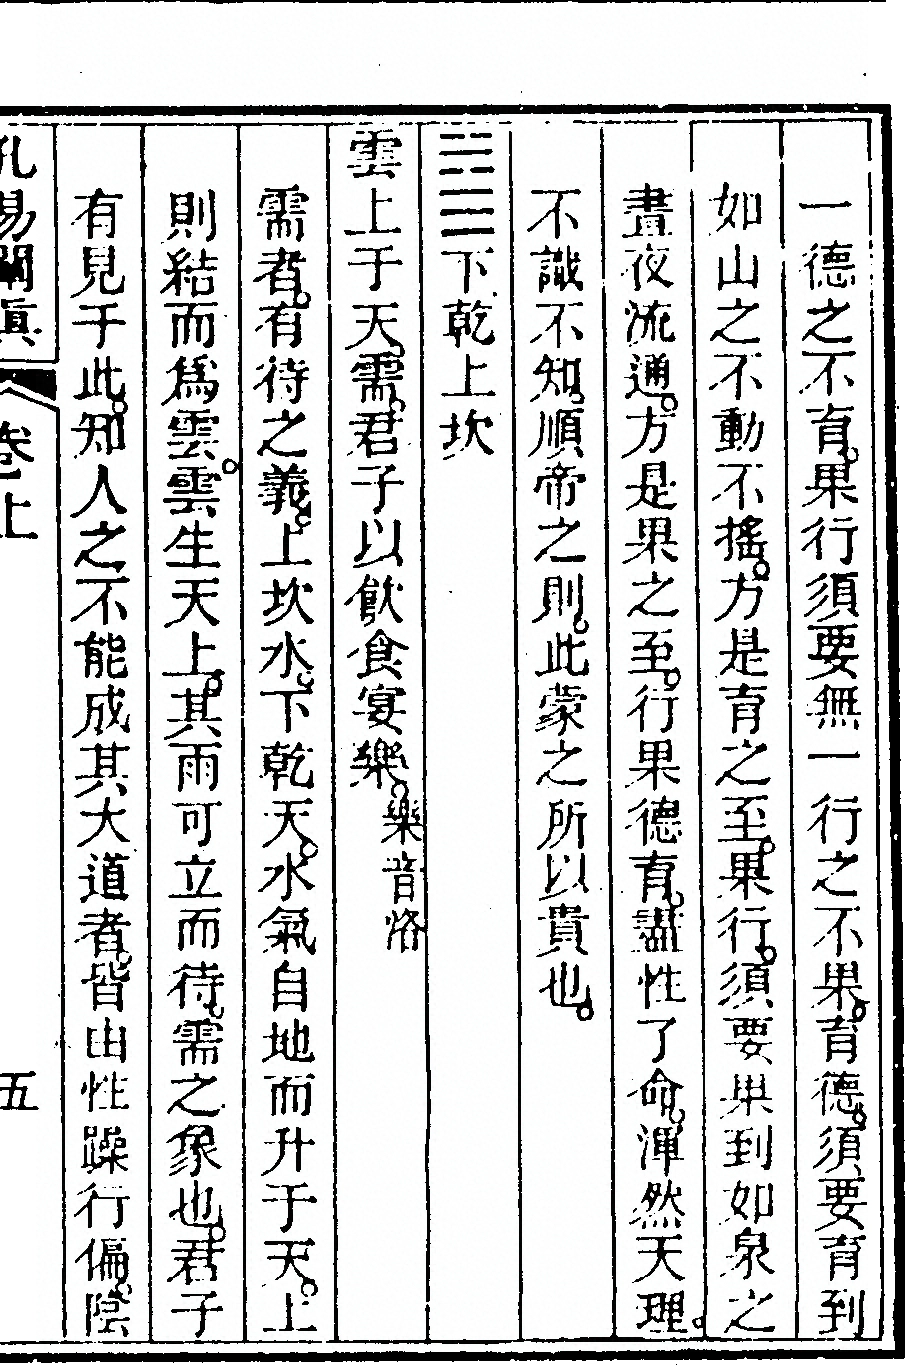 一德之不育。果行須要無一行之不果。育德。須要育到
如山之不動不搖。方是育之至。果行。須要果到如泉之
晝夜流通。方是果之至。行果德育。盡性了命。渾然天理。
不識不知。順帝之則。此蒙之所以貴也。
䷄下乾上坎
雲上于天。需。君子以飲食宴樂。樂音洛
需者。有待之義。上坎水。下乾天。水氣自地而升于天。上
則結而爲雲。雲生天上。其雨可立而待。需之象也。君子
有見于此。知人之不能成其大道者。皆由性躁行偏。陰
孔易闡真 卷上 五